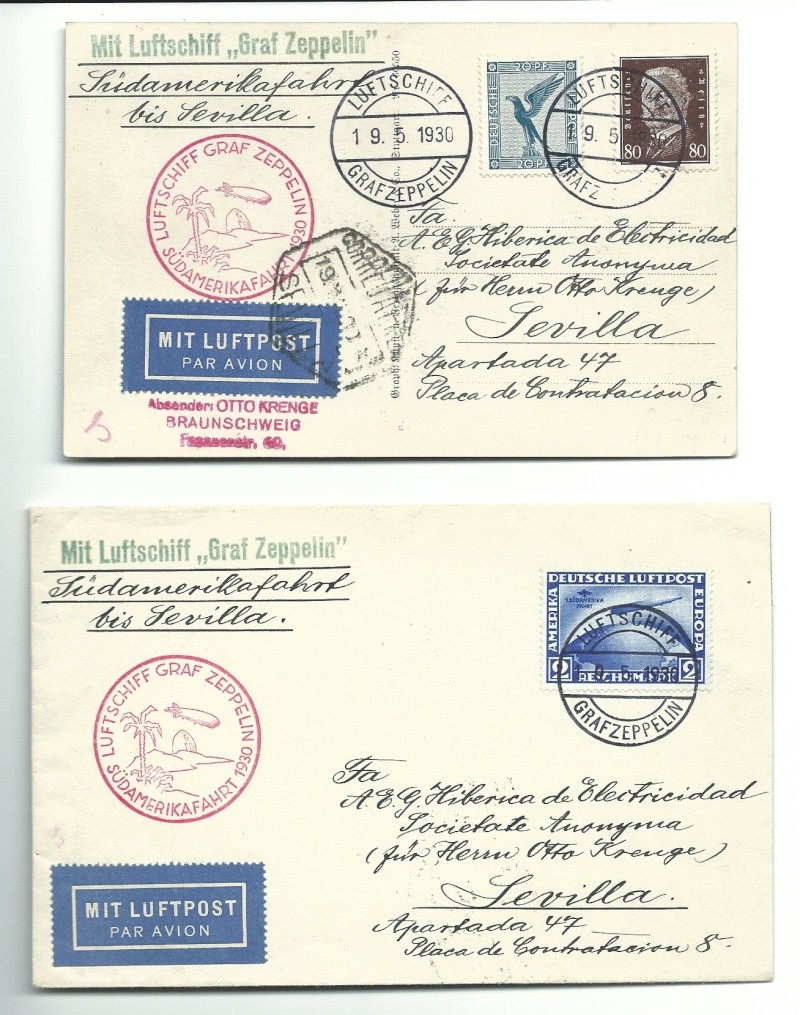 Mit Luftschiff „Graf Zeppelin"
Südamerikafahrt
bis Sevilla.
LUFTSCHIFF GRAF ZEPPELIN
SÜDAMERIKAFAHRT 1930
MIT LUFTPOST
PAR AVION
Absender: OTTO KRENGE
BRAUNSCHWEIG
60,
LUFTSCHIFF
19.5.1930
GRAFZEPPELIN
20 PF
DEUTSCHE
20 PF
Deutsches Reich
80 80
LUFTSCHIFF
19.5
GRAFZ
CORREO
Fa.
A.E.G. Hiberica de Electricidad
Societate Anonyma
(für Herrn Otto Krenge)
Sevilla
Apartada 47
Placa de Contratacion 8.
Mit Luftschiff „Graf Zeppelin"
Südamerikafahrt
bis Sevilla.
LUFTSCHIFF GRAF ZEPPELIN
SÜDAMERIKAFAHRT 1930
MIT LUFTPOST
PAR AVION
DEUTSCHE LUFTPOST
AMERIKA
EUROPA
1.SÜDAMERIKA
FAHRT
2 REICHSMARK 2
LUFTSCHIFF
19.5.1930
GRAFZEPPELIN
Fa
A.E.G. Hiberica de Electricidad
Societate Anonyma
(für Herrn Otto Krenge)
Sevilla.
Apartada 47
Placa de Contratacion 8.